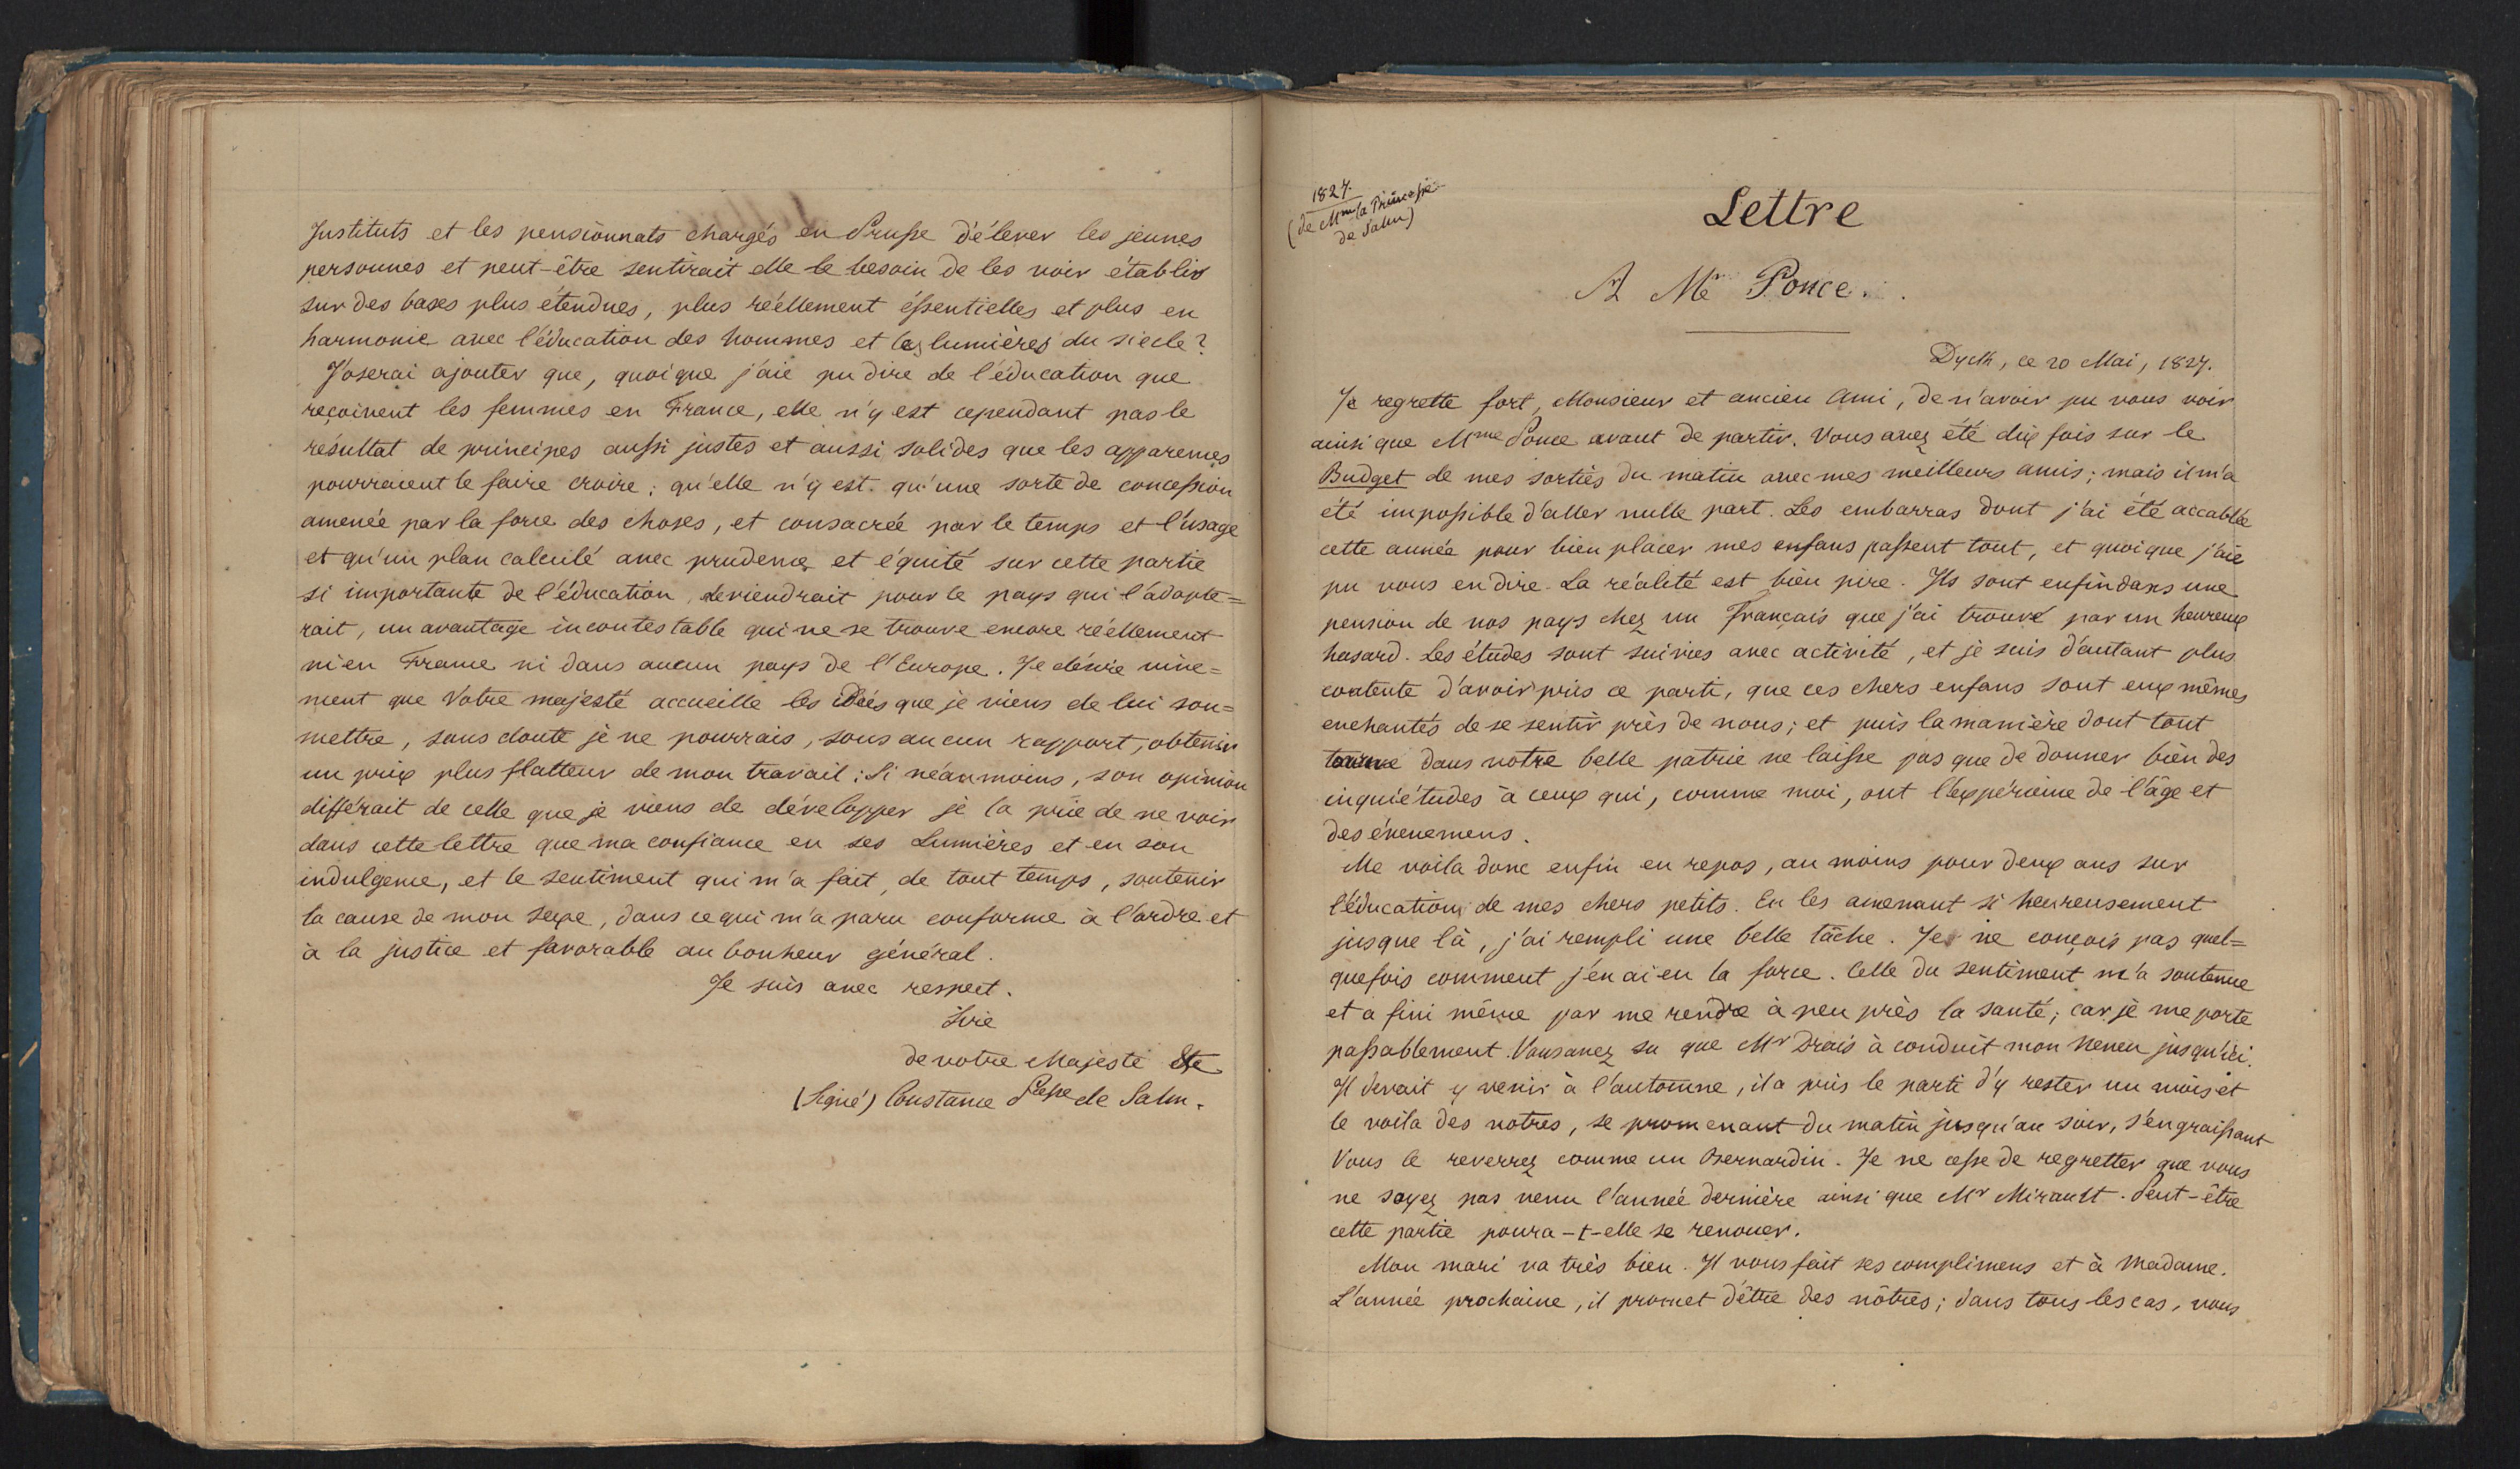 Instituts et les pensionnats chargés en Prusse d'élever les jeunes
personnes et peut-être sentirait elle le besoin de les voir établir
sur des bases plus étendues, plus réellement éssentielles et plus en
harmonie avec l'éducation des hommes et les lumières du siecle?
J'oserai ajouter que, quoique j'aie pu dire de l'éducation que
reçoivent les femmes en France, elle n'y est cependant pas le
résultat de principes aussi justes et aussi solides que les apparences
pourraient le faire croire; qu'elle n'y est qu'une sorte de concession
amenée par la force des choses, et consacrée par le temps et l'usage
et qu'un plan calculé avec prudence et équité sur cette partie
si importante de l'éducation, deviendrait pour le pays qui l'adopte=
rait, un avantage incontestable qui ne se trouve encore réellement
ni en France ni dans aucun pays de l'Europe. Je désire vive=
ment que Votre majesté accueille les idées que je viens de lui sou=
mettre, sans doute je ne pourrais, sous aucun rapport, obtenir
un prix plus flatteur de mon travail; Si néanmoins, son opinion
différait de celle que je viens de développer je la prie de ne voir
dans cette lettre que ma confiance en ses Lumières et en son
indulgence, et le sentiment qui m'a fait, de tout temps, soutenir
la cause de mon sexe, dans ce qui m'a paru conforme à l'ordre et
à la justice et favorable au bonheur général.
Je suis avec respect.
Sire
de votre Majesté &c
(Signé) Constance Psse de Salm.
1827.
(de Mme la Princesse
de Salm)
Lettre
A Mr Ponce.
Dyck, ce 20 Mai, 1827.
Je regrette fort, Monsieur et ancien Ami, de n'avoir pu vous voir
ainsi que Mme Ponce avant de partir. Vous avez été dix fois sur le
Budget de mes sorties du matin avec mes meilleurs amis; mais il m'a
été impossible d'aller nulle part. Les embarras dont j'ai été accablée
cette année pour bien placer mes enfans passent tout, et quoique j'aie
pu vous en dire. La réalité est bien pire. Ils sont enfin dans une
pension de nos pays chez un Français que j'ai trouvé par un heureux
hasard. Les études sont suivies avec activité, et je suis d'autant plus
contente d'avoir pris ce parti, que ces chers enfans sont eux mêmes
enchantés de se sentir près de nous; et puis la manière dont tout
tourne dans notre belle patrie ne laisse pas que de donner bien des
inquiétudes à ceux qui, comme moi, ont l'expérience de l'âge et
des évenemens.
Me voila donc enfin en repos, au moins pour deux ans sur
l'éducation de mes chers petits. En les amenant si heureusement
jusque là, j'ai rempli une belle tâche. Je ne conçois pas quel=
quefois comment j'en ai eu la force. Celle du sentiment m'a soutenue
et a fini même par me rendre à peu près la santé; car je me porte
passablement. Vous avez su que Mr Drais à conduit mon neveu jusqu'ici.
Il devait y venir à l'automne, il a pris le parti d'y rester un mois et
le voila des notres, se promenant du matin jusqu'au soir, s'engraissant
Vous le reverrez comme un Bernardin. Je ne cesse de regretter que vous
ne soyez pas venu l'année dernière ainsi que Mr Mirault. Peut-être
cette partie poura-t-elle se renouer.
Mon mari va très bien. Il vous fait ses complimens et à Madame.
L'année prochaine, il promet d'être des nôtres; dans tous les cas, vous